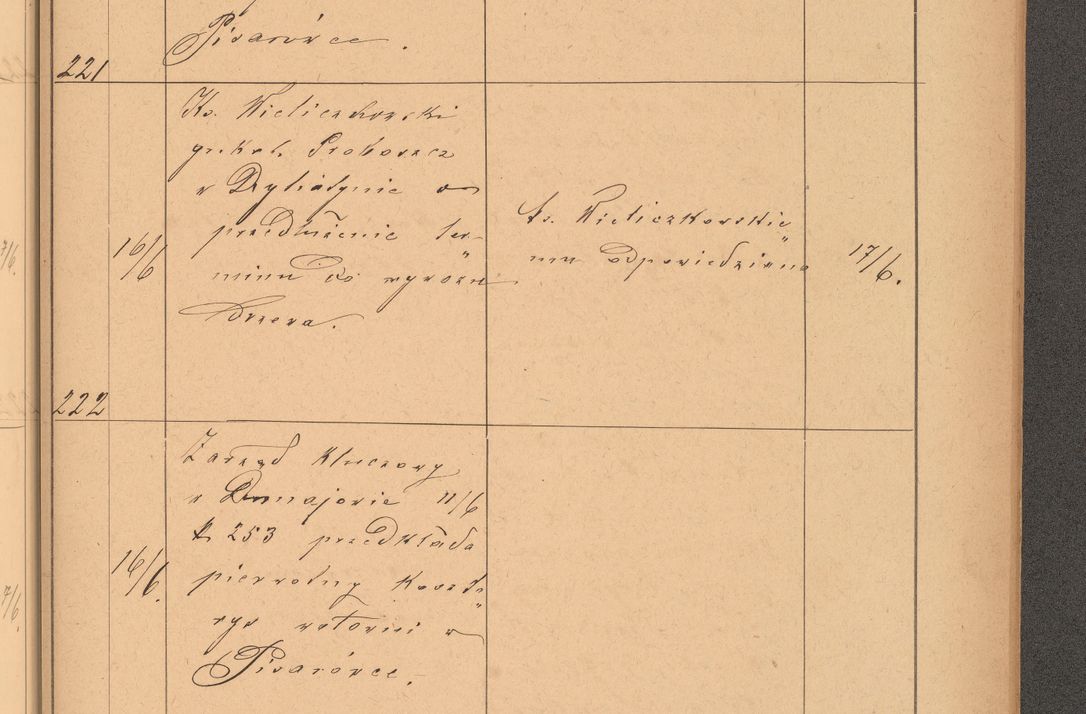 Pisarówce.
221
Ks. Wieliczkowski
gr. kat. Proboszcz
w Dytiatynie o
przedłużenie ter„
minu do wywozu
drzewa.
16/6
Ks. Wieliczkowskie„
mu odpowiedziano
17/6.
222
Zarząd kluczowy
w Dunajowie 11/6
L 253 przedkłada
pierwotny koszto„
rys
w
Pisarówce.
16/6.
7/6.
7/6.